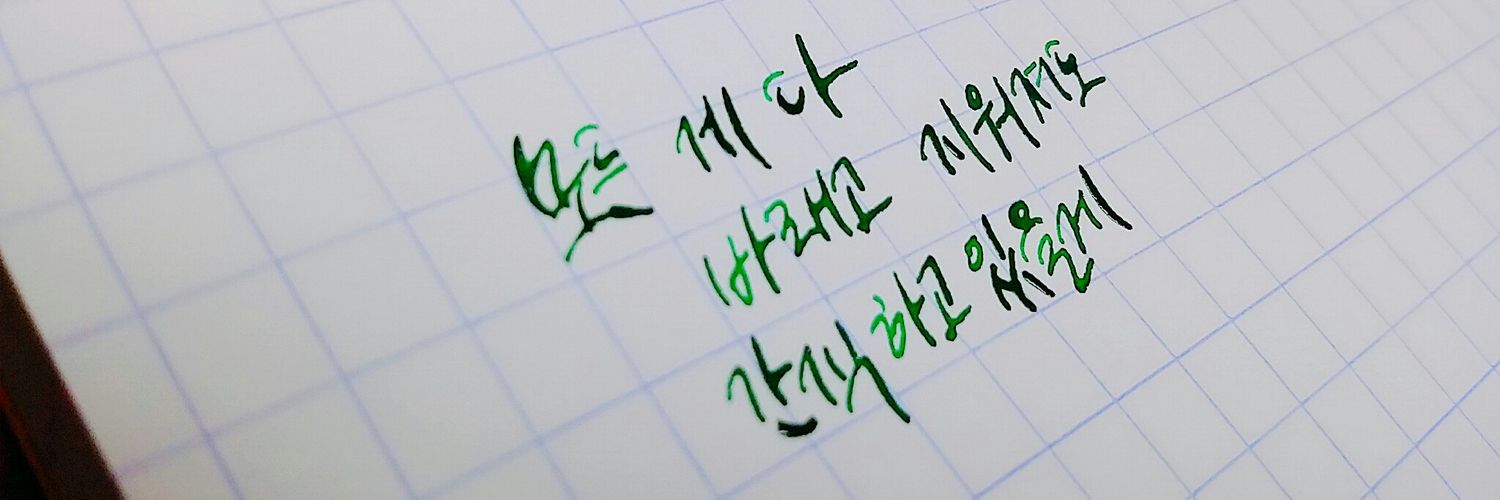 모든 게 다
바래고 지워져도
간직하고 있을게